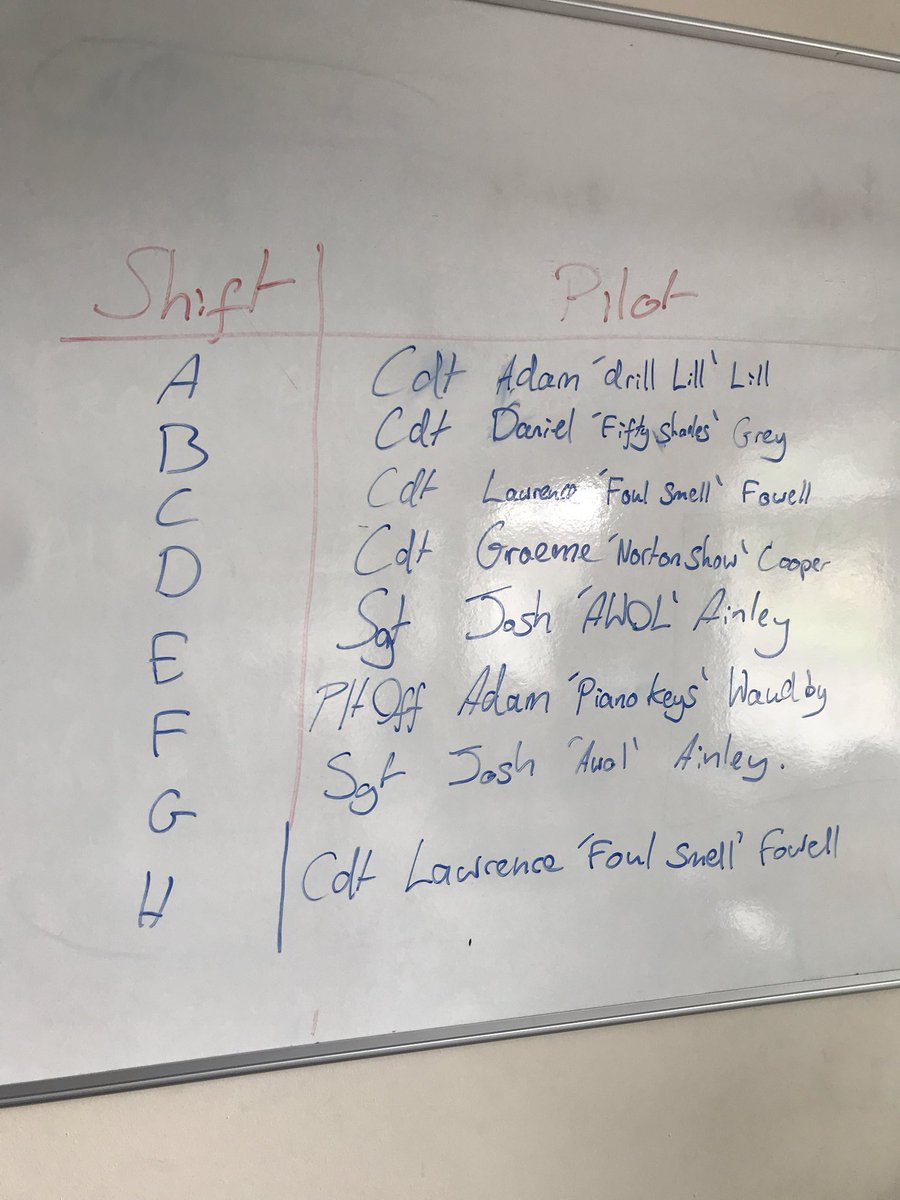 Shift Pilot
A Cdt Adam 'drill Lill' Lill
B Cdt Daniel 'Fifty Shades' Grey
C Cdt Lawrence 'Foul Smell' Fowell
D Cdt Graeme 'Norton Show' Cooper
E Sgt Josh 'AWOL' Ainley
F Plt Off Adam 'Piano keys' Waudby
G Sgt Josh 'Awol' Ainley.
H Cdt Lawrence 'Foul Smell' Fowell